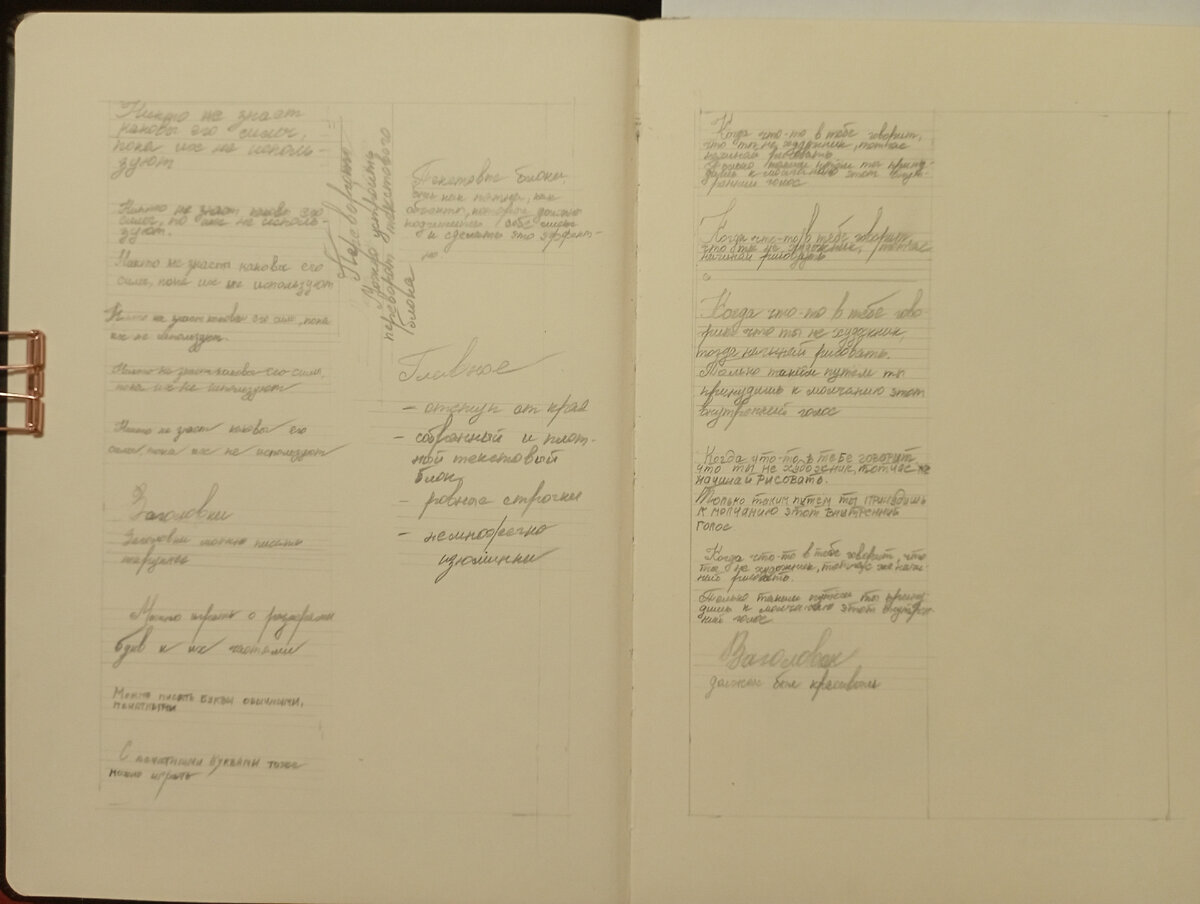 Никто не знает
каковы его силы,
пока их не исполь-
зуют
Никто не знает каковы его
силы, по их не исполь-
зуют.
Никто не знает каковы его
силы, пока их не используют
Никто не знает каковы его силы, пока
их не используют.
Никто не знает каковы его силы,
пока их не используют
Никто не знает каковы его
силы пока их не используют
Заголовки
Заголовки можно писать
Можно играть с размерами
букв и их частями
Можно писать буквы обычными,
печатными
С печатными буквами тоже
можно играть
Перевороты
Можно устроить
переворот текстового
блока
Текстовые блоки,
они как пятна, как
объекты, которые должны
подчиняться
и сделать это эффект-
но
Главное
– отступ от края
– собранный и плот-
ной текстовый
блок
– ровные строчки
– немножечко
изюминки
Когда что-то в тебе говорит,
что ты не художник, тотчас
начинай рисовать
только таким путем ты прину-
дишь к молчанию этот внут-
ренний голос
Когда что-то в тебе говорит,
что ты не художник, тотчас
начинай рисовать
Когда что-то в тебе гово-
рит что ты не художник,
тогда начинай рисовать.
Только таким путем ты
принудишь к молчанию этот
внутренний голос
Когда что-то в тебе говорит
что ты не художник, тотчас же
начинай рисовать.
Только таким путем ты принудишь
к молчанию этот внутренний
голос
Когда что-то в тебе говорит, что
ты не художник, тотчас же начи-
най рисовать.
Только таким путем ты прину-
дишь к молчанию этот внутрен-
ний голос
Заголовок
должен быть красивым